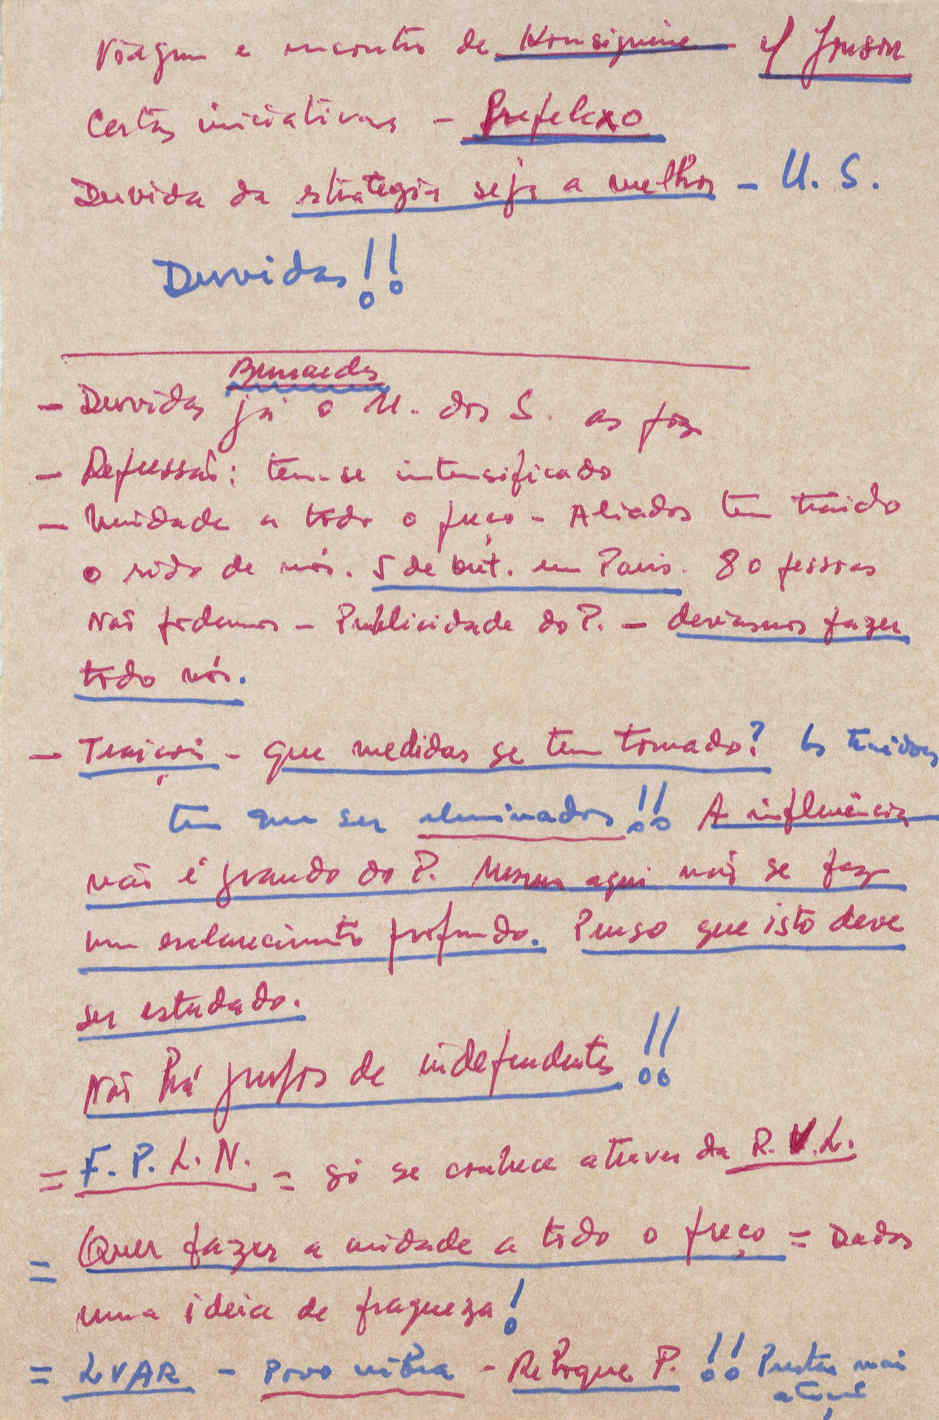 Viagem e encontro de Konsiguine c/ Jonson
Certas iniciativas - Prefelexo
Duvida da estrategia seja a melhor - U. S.
Duvidas!!
Bernardes
- Duvidas já o U. dos S. as faz
- Repressão: tem-se intensificado
- Unidade a todo o preço - Aliados tem traido
o rodo de nós. 5 de out. em Paris. 80 pessoas
Não podemos - Publicidade do P. - deviamos fazer
todo nós.
- Traiçoi - que medidas se tem tomado? Os traidores
tem que ser eliminados!! A influência
não é grande do P. Mesmo aqui não se faz
um esclarecimento profundo. Penso que isto deve
ser estudado.
Não há grupos de independentes!!
= F. P. L. N. = só se conhece atraves da R. V. L.
= Quer fazer a unidade a todo o preço = Dados
uma ideia de fraqueza!
= LVAR - Povo vibra - Reboque P. !!